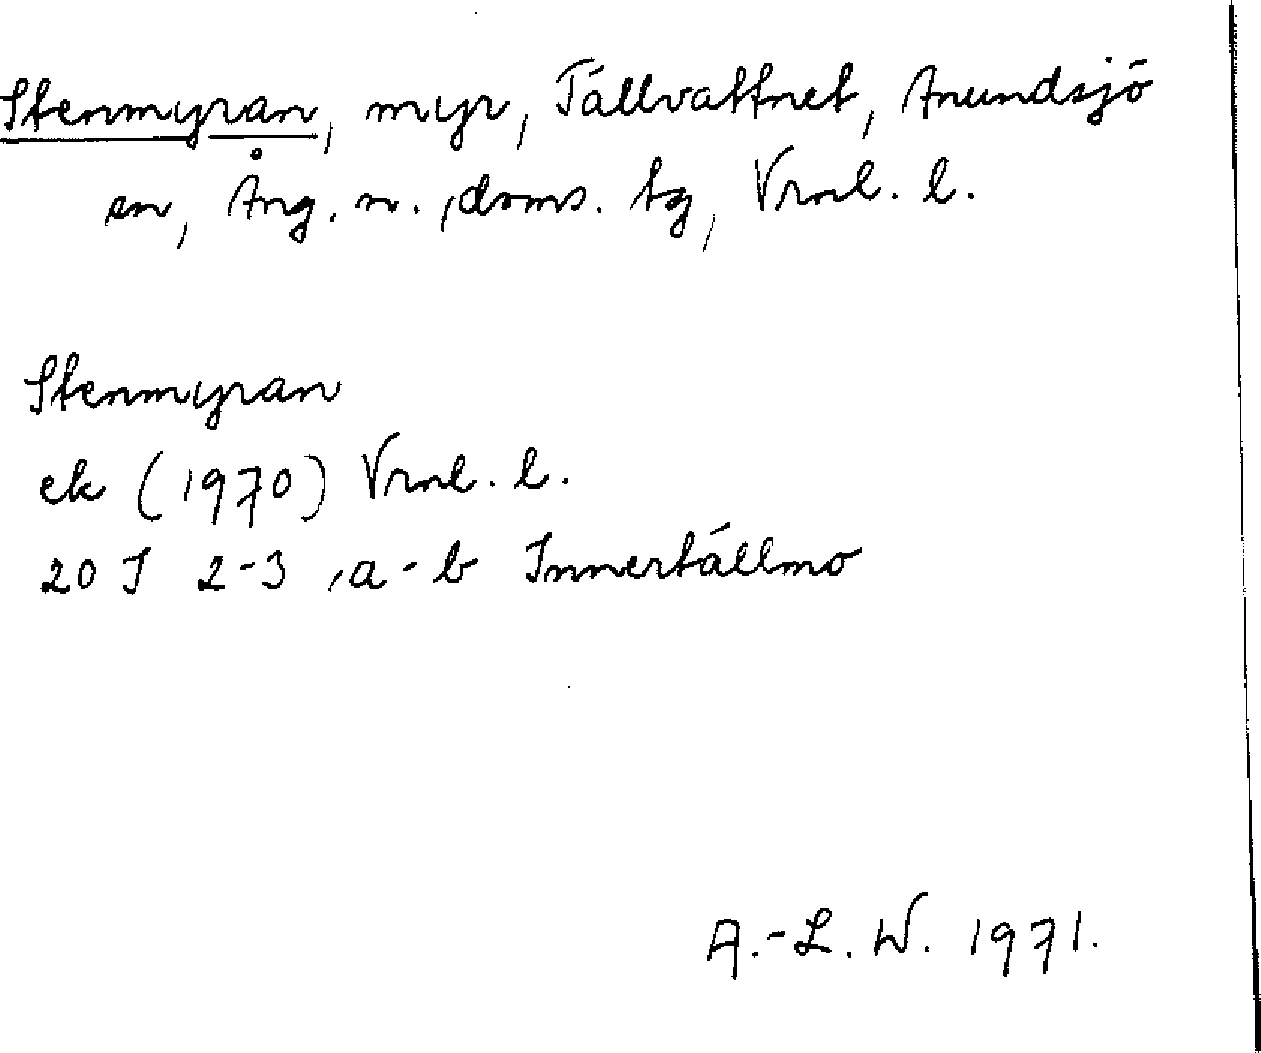 Stenmyran, myr, Tällvattnet, Anundsjö
sn, Ång. n. doms. tg, Vrnl. l.
Stenmyran
ek (1970) Vrnl. l.
20 J 2-3, a-b Innertällmo
A.-L. W. 1971.